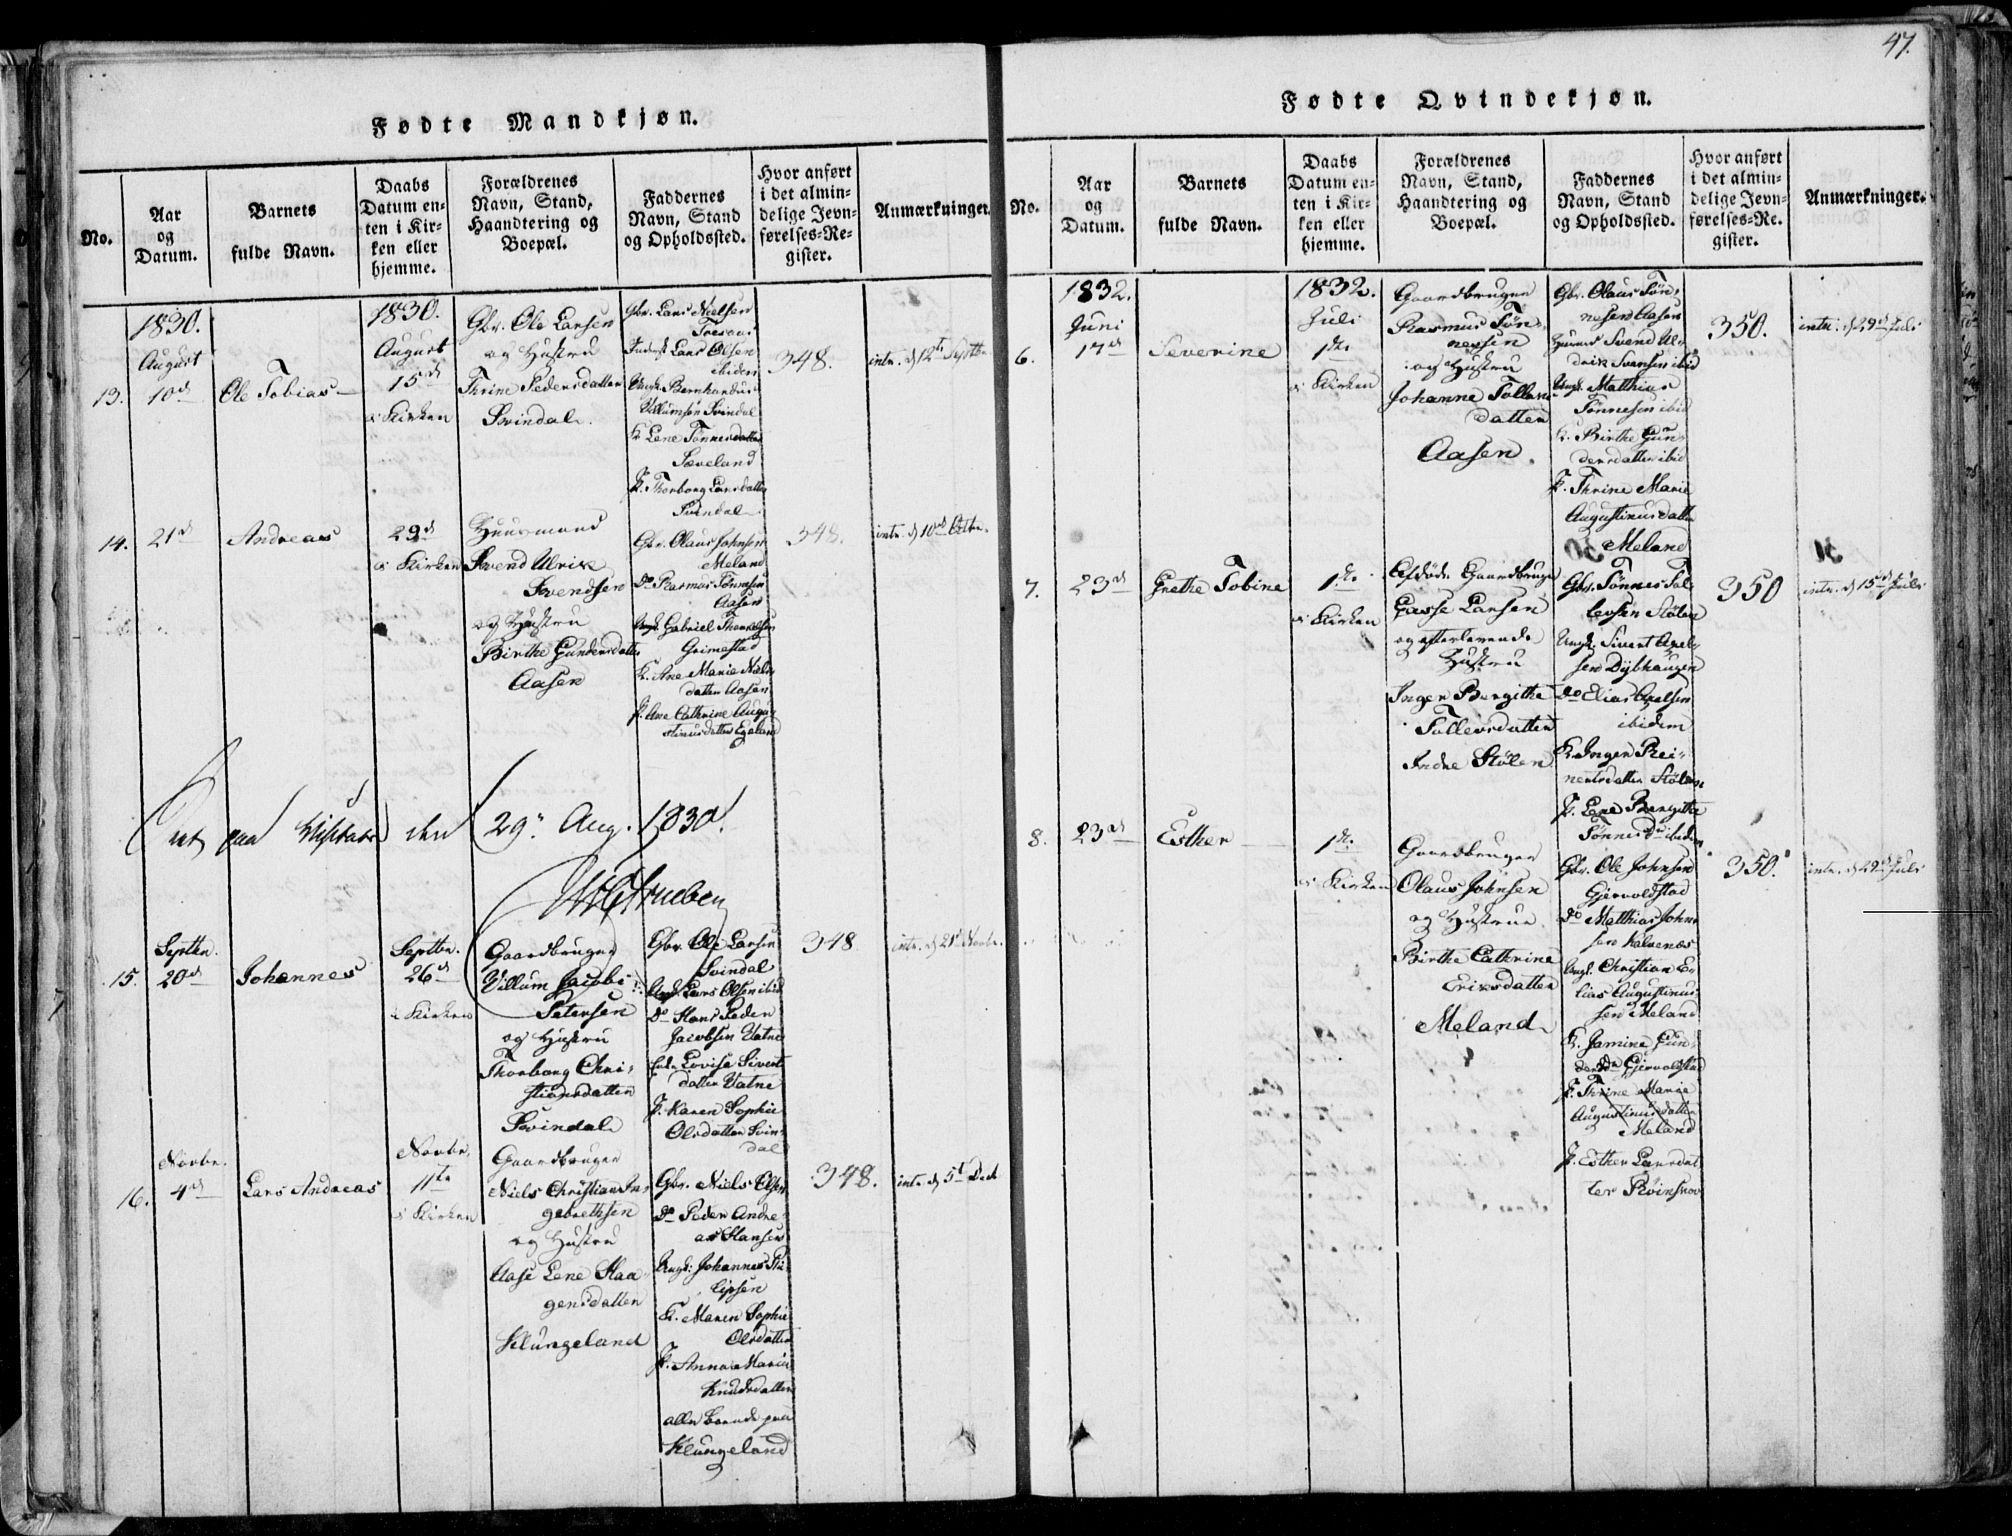 47.
Fødte Mandkjøn.
No.
Aar
og
Datum.
Barnets
fulde Navn.
Daabs
Datum en-
ten i Kir-
ken eller
hjemme.
Forældrenes
Navn, Stand,
Haandtering og
Boepæl.
Faddernes
Navn, Stand
og Opholdssted.
Hvor anført
i det almin-
delige Jevn-
førelses-Re-
gister.
Anmærkninger.
1830.
August
13. 10d
Ole Tobias
1830.
August
15d
i Kirken
Gbr. Ole Larsen
og Hustru
Thrine Pedersdatter
Svindal.
Gbr. Lars Nielsen
Lars Olsen
ibidem
Ungk. Bernhardus
Villumsen Svindal
K. Lene Tønnesdatter
Sæveland
P. Thorborg Larsdatter
Svindal
348.
intr. d 12te Septbr.
14. 21d
Andreas
29d
i Kirken
Huusmand
Svend Ulrik
Svendsen
og Hustru
Birthe Gundersdatter
Aasen
Gbr. Olaus Johnsen
Meland
Do Rasmus Tønnesen
Aasen
Ungk. Gabriel
Grimestad
K. Ane Marie Niels-
datter Aasen
P. Ane Cathrine Augu-
stinusdatter Egeland
348.
intr. d 10d Octbr.
paa den 29. Aug. 1830.
Septbr.
15. 20d
Johannes
Septbr.
26d
i Kirken
Gaardbruger
Villum Jacobi
Petersen
og Hustru
Thorborg Chri-
stiansdatter
Svindal
Gbr. Ole Larsen
Svindal
Ungk. Lars Olsen ibid
Do Hans Peder
Jacobsen Vatne
Lovise Sivert-
datter Vatne
P. Karen Sophie
Olsdatter Svin-
dal
348
intr. d 21d Novbr.
Novbr.
16. 4d
Lars Andreas
Novbr.
11te
i Kirken
Gaardbruger
Niels Christian In-
gebrethsen
og Hustru
Aase Lene Haa-
gensdatter
Klungeland
Gbr. Niels Olsen
Do Peder Andre-
as Hansen
Ungk. Johannes Phi-
lipsen
K. Maren Sophie
Olsdatter
P. Anna Maria
Knudsdatter
alle boende paa
Klungeland
348.
intr. d 5t Decb
Fødte Qvindekjøn.
No.
Aar
og
Datum.
Barnets
fulde Navn.
Daabs
Datum en-
ten i Kir-
ken eller
hjemme.
Forældrenes
Navn, Stand,
Haandtering og
Boepæl.
Faddernes
Navn, Stand
og Opholdssted.
Hvor anført
i det almin-
delige Jevn-
førelses-Re-
gister.
Anmærkninger.
1832.
Juni
6. 17d
Severine
1832.
Juli
1te
i Kirken
Gaardbruger
Rasmus Tøn-
nesen
og Hustru
Johanne Tollevs-
datter
Aasen.
Gbr. Olaus Tøn-
nesen Aasen
Huusmd Svend Ul-
drik Svensen ibid
Ungk. Mathias
Tønnesen ibid
K. Birthe Gun-
dersdatter ibid
P. Thrine Marie
Augustinusdatter
Meland
350.
intr. d 29d Juli
7. 23d
Grethe Tobine
1te
i Kirken
Afdøde Gaardbruger
Lars Larsen
og efterlevende
Hustru
Inger Bergithe
Tollevsdatter
Indre Stølen
Gbr. Tønnes Tol-
levsen Stølen
Ungk. Sivert Axel-
sen Dybhaugen
Do Elias Axelsen
ibidem
K. Inger Rei-
nertsdatter Stølen
P. Lene Bergithe
Tønnesdr ibidem
350
intr. d 15d Juli
8. 23d
Esther
1te
i Kirken
Gaardbruger
Olaus Johnsen
og Hustrue
Birthe Cathrine
Eriksdatter
Meland
Gbr. Ole Johnsen
Gjervoldstad
Do Matthias John-
sen Kalvenæs
Ungk. Christian E-
lias Augustinus-
sen Meland
K. Jamine Gun-
dersdr Gjervoldstad
P. Thrine Marie
Augustinusdatter
Meland
P. Esther Larsdat-
ter
350.
intr. d 29d Juli